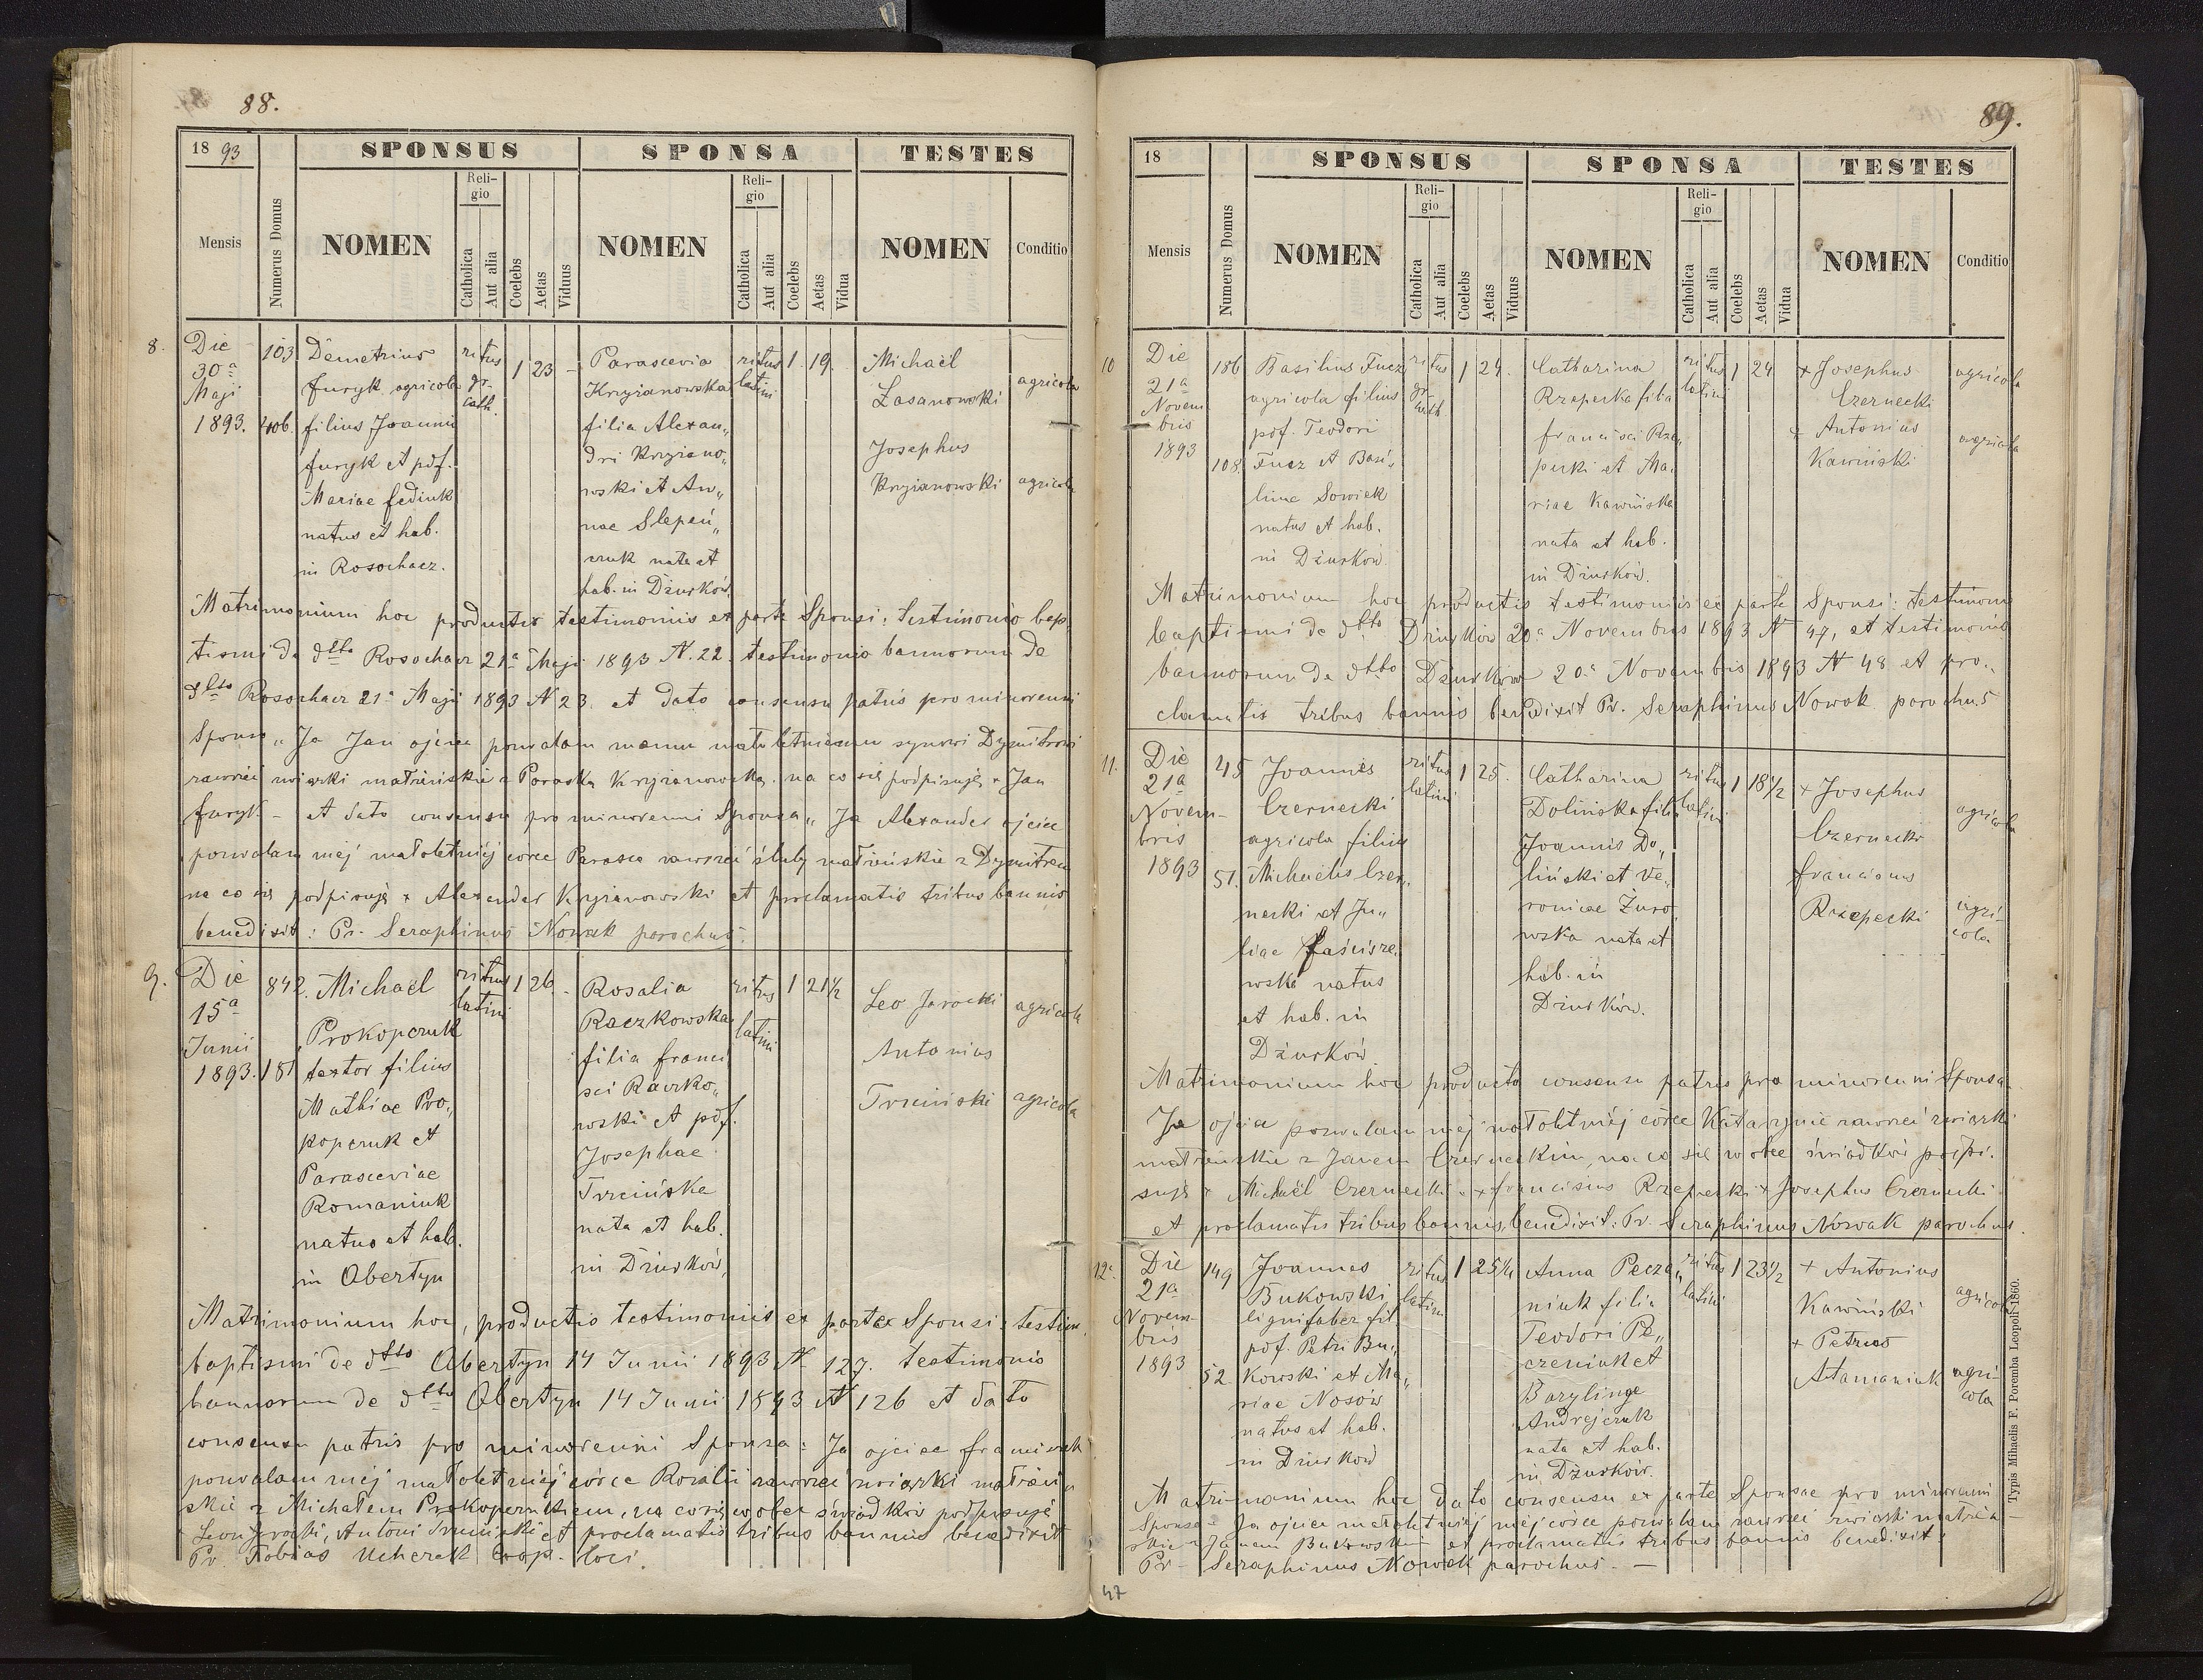 88.
18 93
SPONSUS
SPONSA
TESTES
Mensis
Numerus Domus
NOMEN
Religio
Catholica
Aut alia
Coelebs
Aetas
Viduus
NOMEN
Religio
Catholica
Aut alia
Coelebs
Aetas
Vidua
NOMEN
Conditio
8.
Die
30a
Maji
1893.
103
406
Demetrius
Furyk agricola
filius Joannis
Furyk et pdf.
Mariae Fediuk
natus et hab.
in Rosochacz.
ritus
gr.
cath.
1
23
-
Parascevia
Krzyżanowska
filia Alexan„
dri Krzyżano„
wski et An„
nae Slepeń„
czuk nata et
hab. in Dżurków.
ritus
latini
1
19.
Michaël
Zasanowski
agricola
Josephus
Krzyżanowski
agricola
Matrimonium hoc productis testimoniis ex parte Sponsi: testimonio bap„
tismi de dtto Rosochacz 21a Maji 1893 N. 22. testimonio bannorum de
dtto Rosochacz 21a Maji 1893 N 23. et dato consensu patris pro minorenni
Sponso „Ja Jan ojciec pozwalam memu małoletniemu synowi Dymitrowi
zawrzeć związki małżeńskie z Paraską Krzyżanowską, na co się podpisuję + Jan
Furyk - et dato consensu pro minorenni Sponsa „Ja Alexander ojciec
pozwalam mej małoletniej córce Parasce zawrzeć śluby małżeńskie z Dymitrem
na co się podpisuję + Alexander Krzyżanowski et proclamatis tribus bannis
benedixit: Pr. Seraphinus Nowak parochus.
9.
Die
15a
Junii
1893.
842.
181
Michaël
Prokopczuk
textor filius
Mathiae Pro„
kopczuk et
Parasceviae
Romaniuk
natus et hab.
in Obertyn
ritus
latini
1
26
-
Rosalia
Raczkowska
filia Franci
sci Raczko„
wski et pdf.
Josephae
Trzcińska
nata et hab.
in Dżurków,
ritus
latini
1
21½
Leo Jarocki
agricola
Antonius
Trzciński
agricola
Matrimonium hoc, productis testimoniis ex parte Sponsi: testim.
baptismi de dtto Obertyn 14 Junii 1893 N. 127. testimonio
bannorum de dtto Obertyn 14 Junii 1893 N 126 et dato
consensu patris pro minorenni Sponsa: Ja ojciec Franciszek
pozwalam mej małoletniej córce Rozalii zawrzeć związki małżeń
skie z Michałem Prokopczukiem, na co się wobec świadków podpisuję
Leon Jarocki, Antoni Trzciński et proclamatis tribus bannis benedixit
Pr. Tobias Ucherek Coop. loci.
89.
18
SPONSUS
SPONSA
TESTES
Mensis
Numerus Domus
NOMEN
Religio
Catholica
Aut alia
Coelebs
Aetas
Viduus
NOMEN
Religio
Catholica
Aut alia
Coelebs
Aetas
Vidua
NOMEN
Conditio
10
Die
21a
Novem
bris
1893
186
108
Basilius Fucz
agricola filius
pdf. Teodori
Fucz et Basi„
linae Sowiek
natus et hab.
in Dżurków
ritus
gr.
cath
1
24.
Catharina
Rzepecka filia
Francisci Rze„
pecki et Ma„
riae Kawińska
nata et hab.
in Dżurków.
ritus
latini
1
24
+ Josephus
Czernecki
agricola
+ Antonius
Kawiński
agricola
Matrimonium hoc productis testimoniis ex parte Sponsi: testimonio
baptismi de dtto Dżurków 20a Novembris 1893 N 47, et testimonio
bannorum de dtto Dżurków 20a Novembris 1893 N 48 et pro„
clamatis tribus bannis benedixit Pr. Seraphinus Nowak parochus
11.
Die
21a
Novem-
bris
1893
45
51.
Joannes
Czernecki
agricola filius
Michaelis Czer„
necki et Ju„
liae
wska natus
et hab. in
Dżurków.
ritus
latini
1
25.
Catharina
Dolińska filia
Joannis Do„
liński et Ve„
ronicae Żuro„
wska nata et
hab. in
Dżurków.
ritus
latini
1
18½
+ Josephus
Czernecki
agricola
Franciscus
Rzepecki
agri-
cola
Matrimonium hoc producto consensu patris pro minorenni Sponsa
Ja ojciec pozwalam mej małoletniej córce Katarzynie zawrzeć związki
małżeńskie z Janem Czerneckim, na co się wobec świadków podpi.
suję + Michaël Czernecki + Franciscus Rzepecki + Josephus Czernecki
et proclamatis tribus bannis, benedixit: Pr. Seraphinus Nowak parochus
12.
Die
21a
Novem-
bris
1893
149
52
Joannes
Bukowski
lignifaber fil
pdf. Petri Bu„
kowski et Ma„
riae Nosów
natus et hab.
in Dżurków
ritus
latini
1
25¼
Anna Pecze„
niuk filia
Teodori Pe„
czeniuk et
Andrejczuk
nata et hab.
in Dżurków.
ritus
latini
1
23½
+ Antonius
Kawiński
agricola
+ Petrus
Atamaniuk
agri-
cola
Matrimonium hoc dato consensu ex parte Sponsae pro minorenni
Sponsa: Ja ojciec małoletniej mej córce pozwalam zawrzeć związki małżeń
skie z Janem Bukowskim et proclamatis tribus bannis benedixit:
Pr. Seraphinus Nowak parochus. -
47
Typis Mihaelis F. Poremba Leopoli 1860.